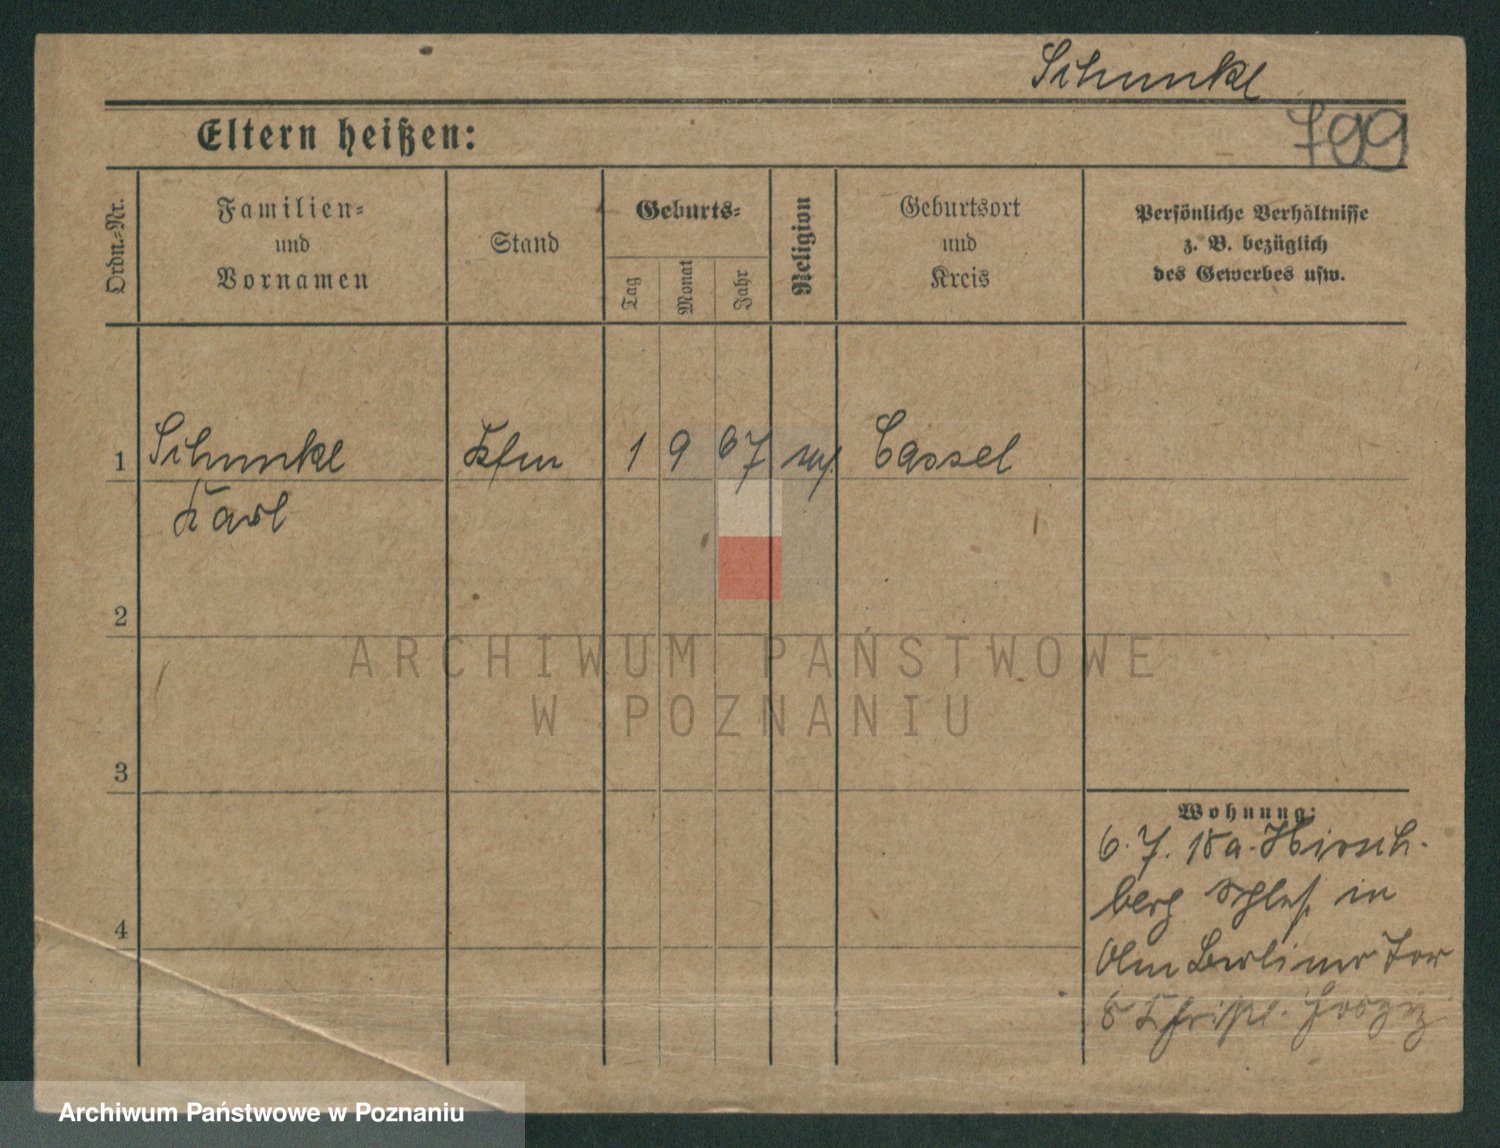 Schunkl
799
Eltern heißen:
Ordn.=Nr.
Familien=
und
Vornamen
Stand
Geburts=
Tag
Monat
Jahr
Religion
Geburtsort
und
Kreis
Persönliche Verhältnisse
z. B. bezüglich
des Gewerbes usw.
1 Kfm 1 9 67 Cassel
Karl
2
3
4
Wohnung:
6. 7. 18 a. Hirsch-
berg Schles. in
Am Berliner Tor
8 Christl. Hospiz
ARCHIWUM PAŃSTWOWE
W POZNANIU
Archiwum Państwowe w Poznaniu